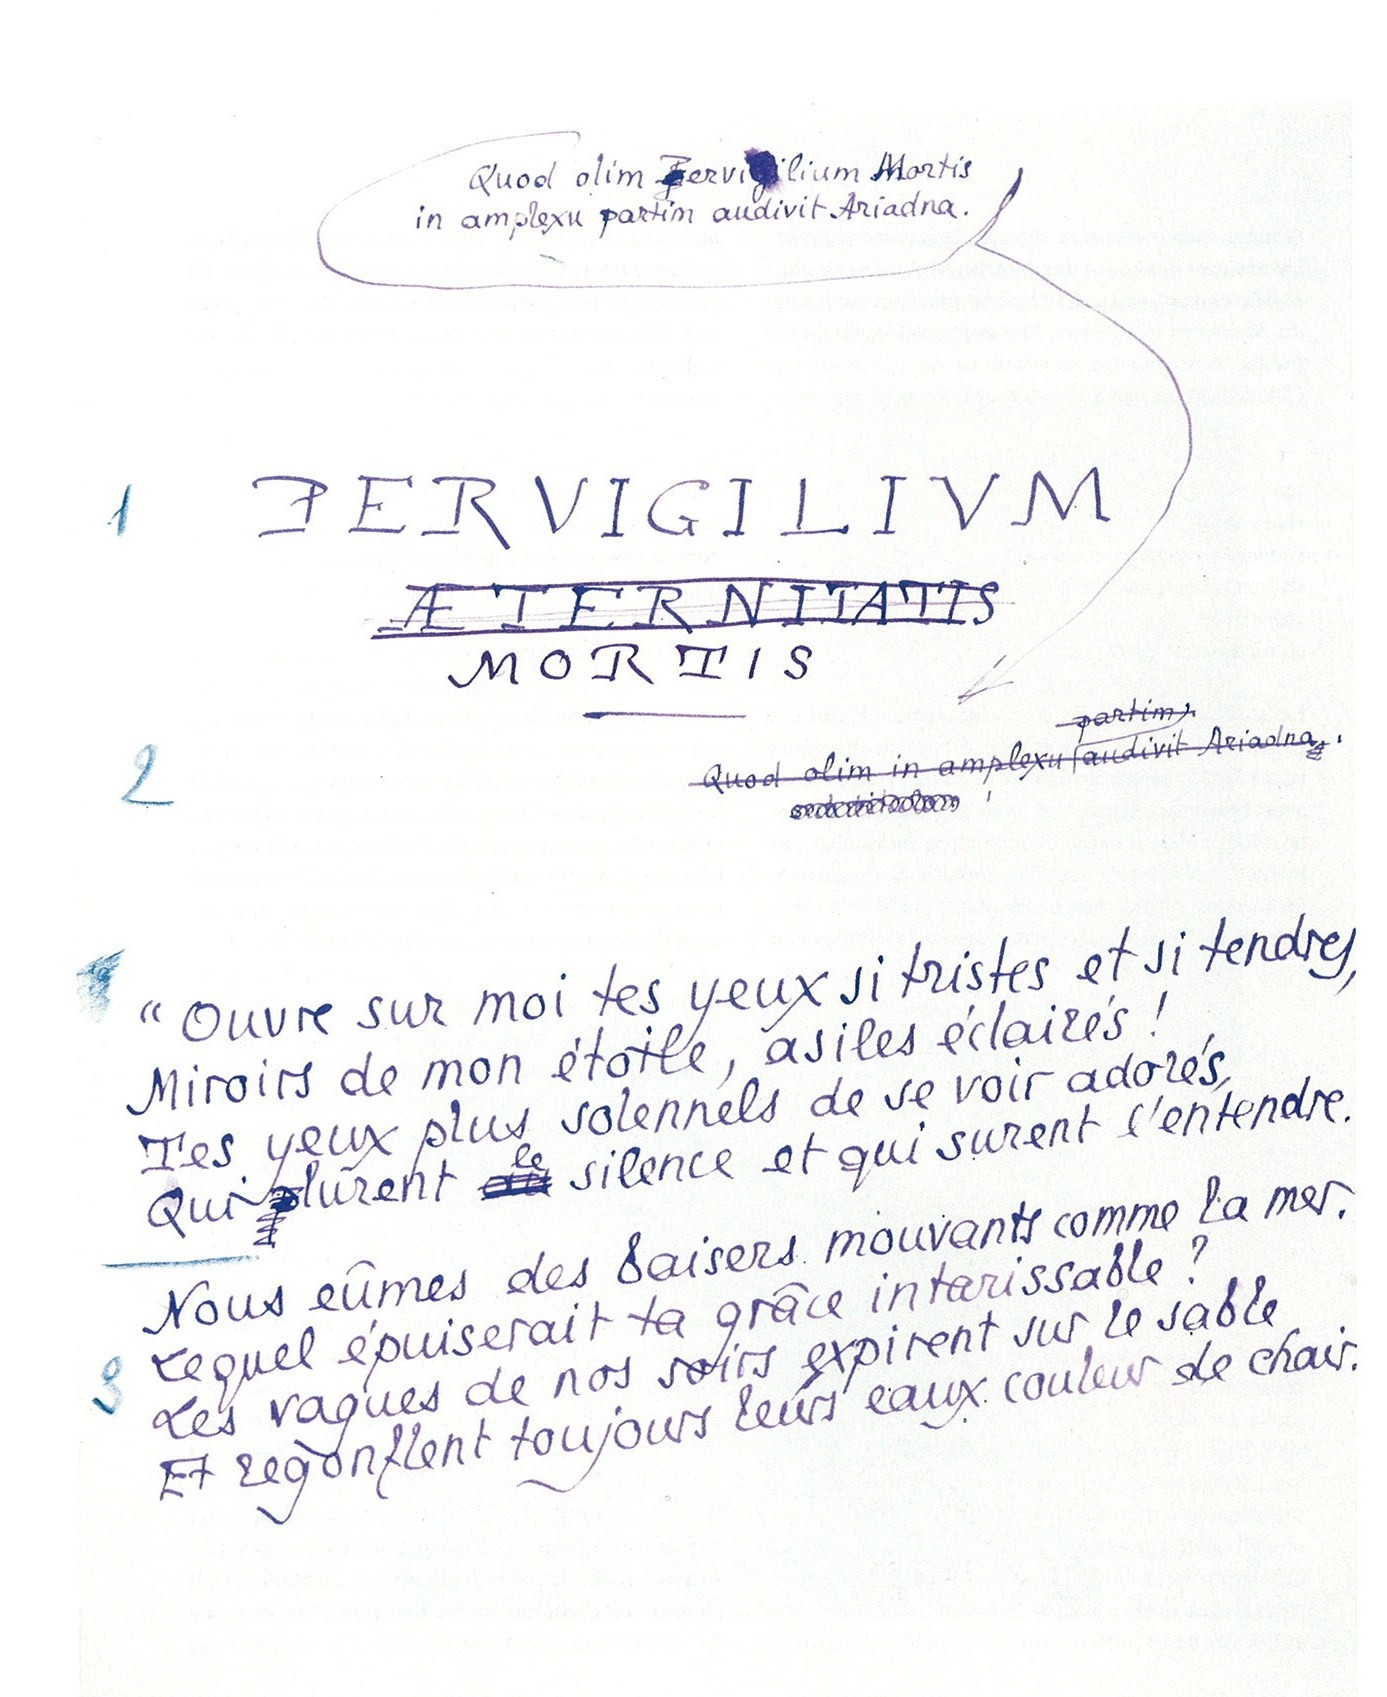 Quod olim Pervigilium Mortis
in amplexu partim audivit Ariadna.
1
PERVIGILIVM
ÆTERNITATIS
MORTIS
partim
2
Quod olim in amplexu audivit Ariadna.
“Ouvre sur moi tes yeux si tristes et si tendres,
Miroirs de mon étoile, asiles éclairés !
Tes yeux plus solennels de se voir adorés,
Qui plurent le silence et qui surent l'entendre.
Nous eûmes des baisers mouvants comme la mer.
Lequel épuiserait ta grâce intarissable ?
3
Les vagues de nos soirs expirent sur le sable
Et regonflent toujours leurs eaux couleur de chair.